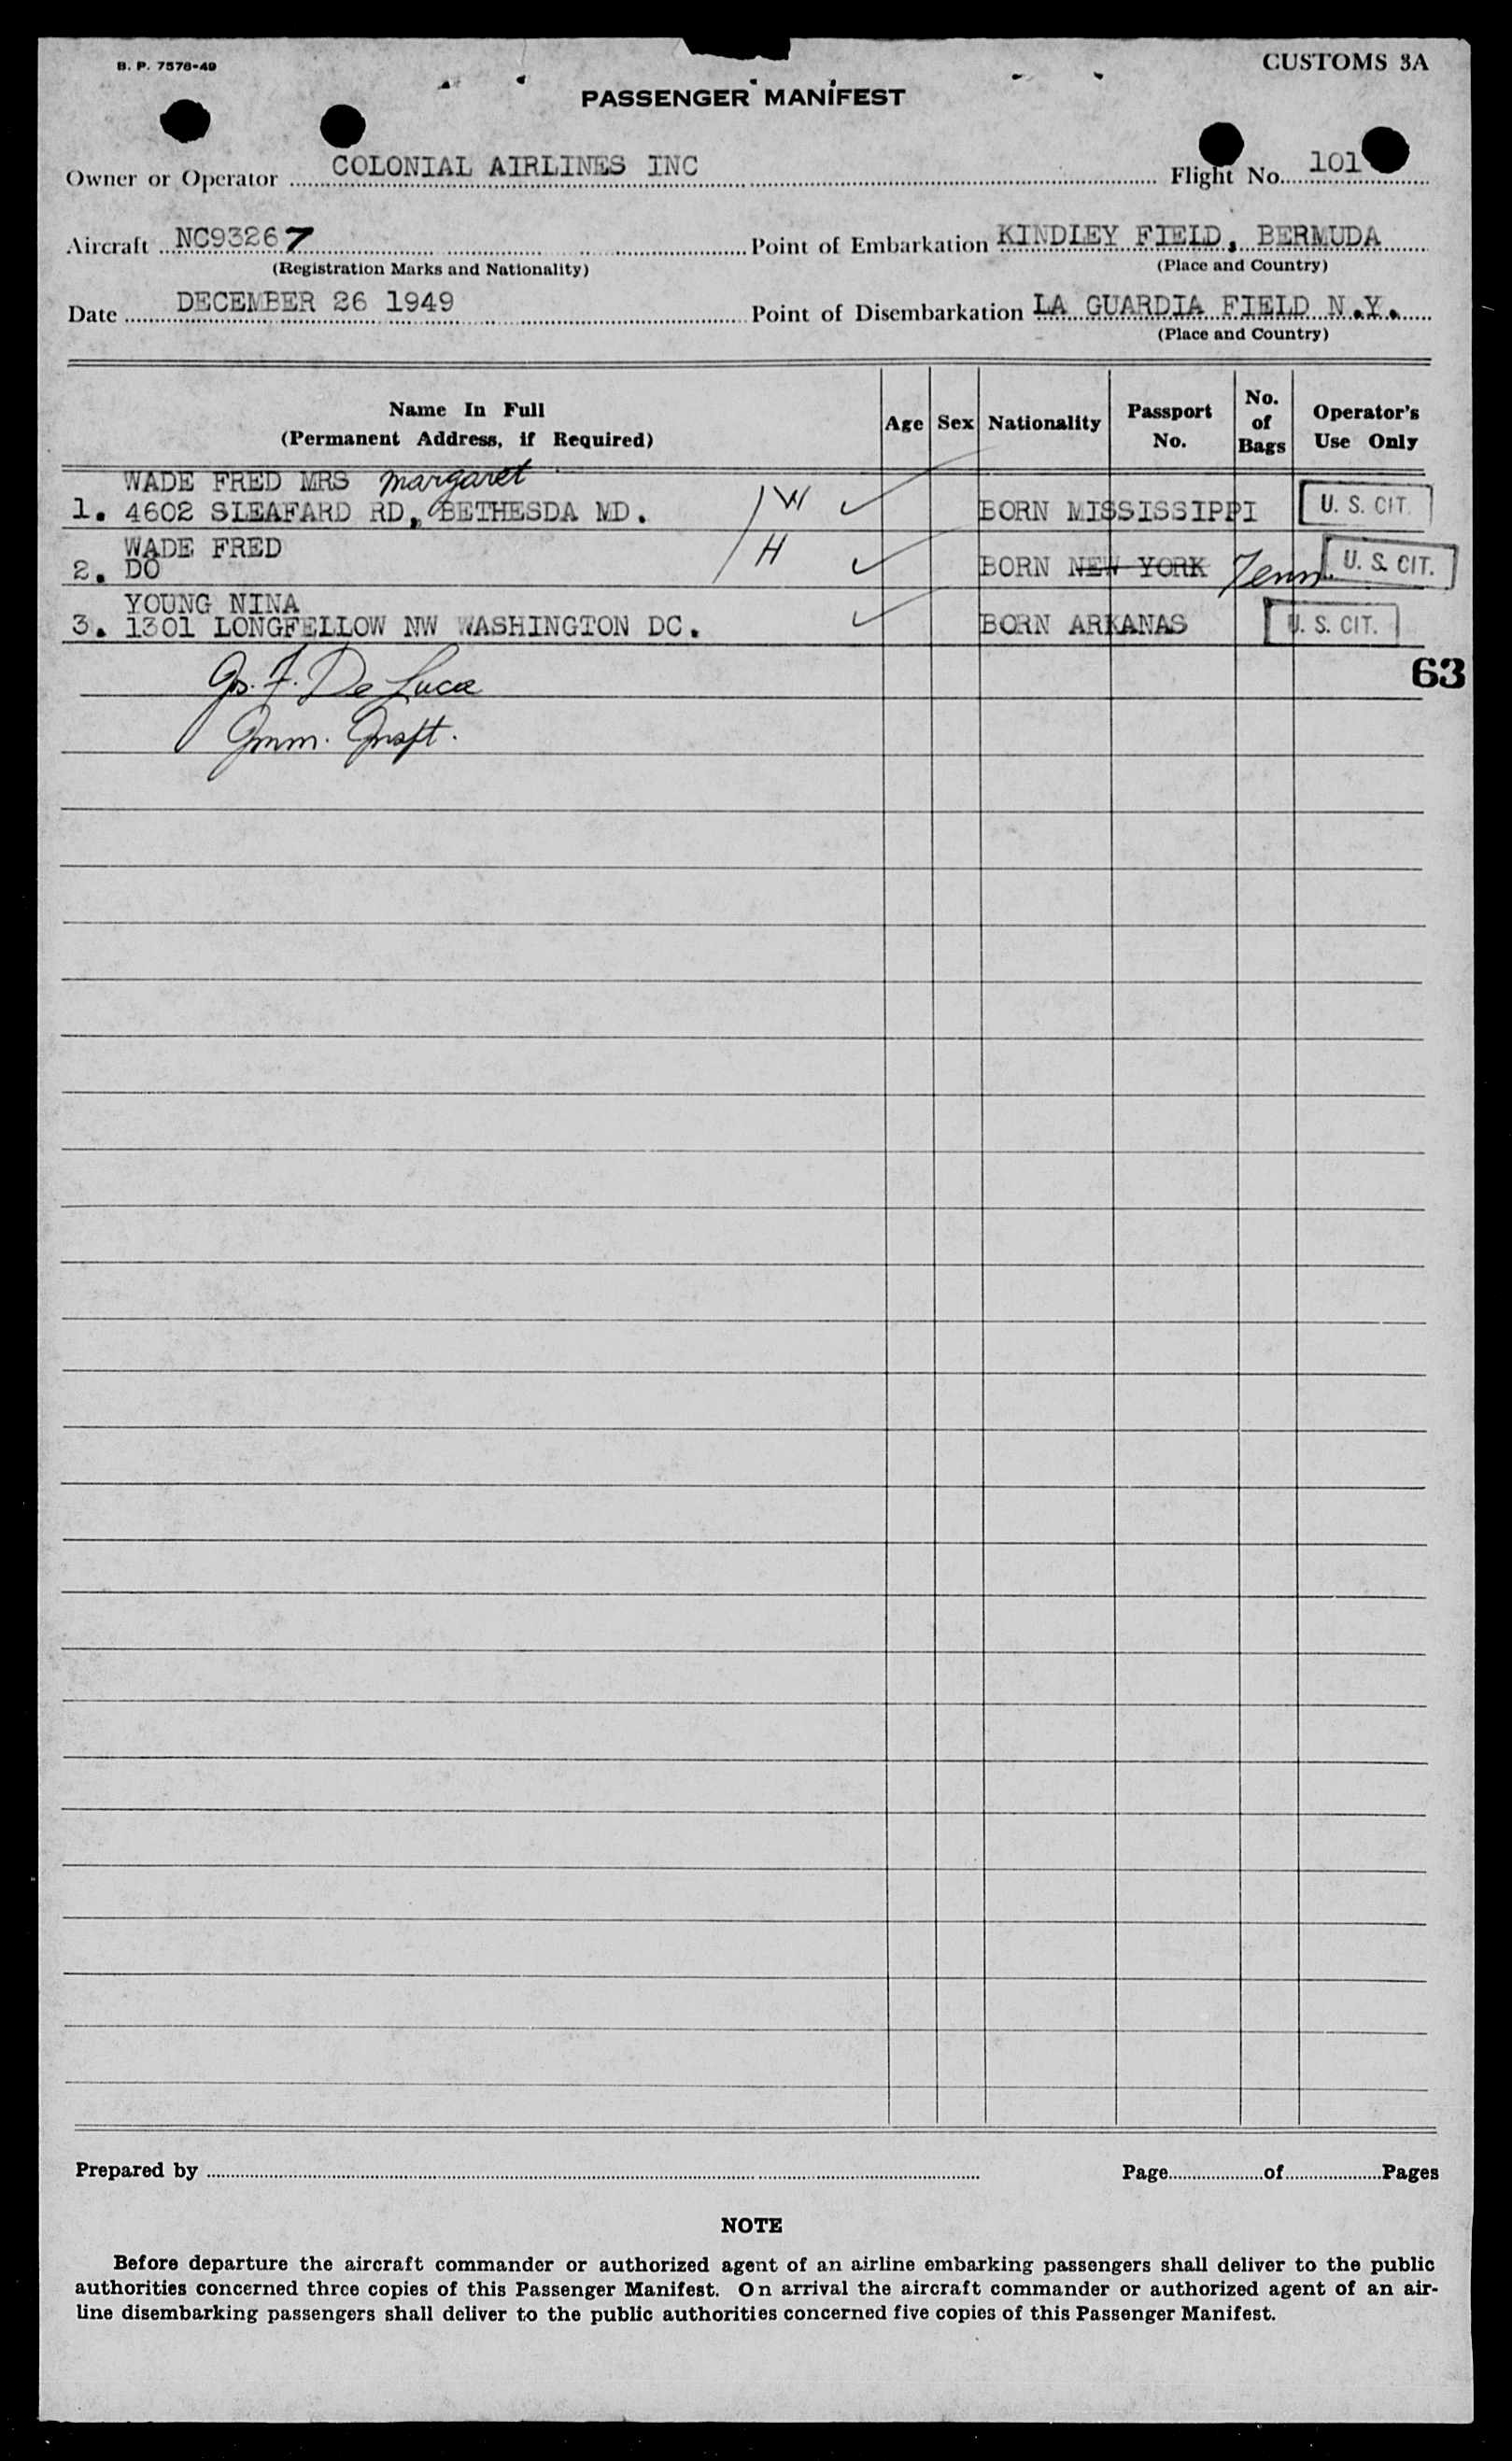 B. P. 7576-49
CUSTOMS 3A
PASSENGER MANIFEST
Owner or Operator COLONIAL AIRLINES INC Flight No. 101
Aircraft NC93267 Point of Embarkation KINDLEY FIELD, BERMUDA
(Registration Marks and Nationality) (Place and Country)
Date DECEMBER 26 1949 Point of Disembarkation LA GUARDIA FIELD N.Y.
(Place and Country)
Name In Full (Permanent Address, if Required) Age Sex Nationality Passport No. No. of Bags Operator's Use Only
WADE FRED MRS Margaret
1. 4602 SLEAFARD RD, BETHESDA MD. W BORN MISSISSIPPI U. S. CIT.
WADE FRED
2. DO H BORN NEW YORK Tenn. U. S. CIT.
YOUNG NINA
3. 1301 LONGFELLOW NW WASHINGTON DC. BORN ARKANAS U. S. CIT.
63
F. De Luca
Imm. Inspt.
Prepared by Page of Pages
NOTE
Before departure the aircraft commander or authorized agent of an airline embarking passengers shall deliver to the public
authorities concerned three copies of this Passenger Manifest. On arrival the aircraft commander or authorized agent of an air-
line disembarking passengers shall deliver to the public authorities concerned five copies of this Passenger Manifest.